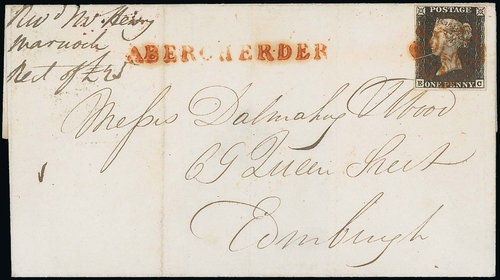 Rev^d W^m Henry
Marnoch
Rect of £25
ABERCHERDER
POSTAGE
E ONE PENNY C
Messrs Dalmahoy & Wood
69 Queen Street
Edinburgh